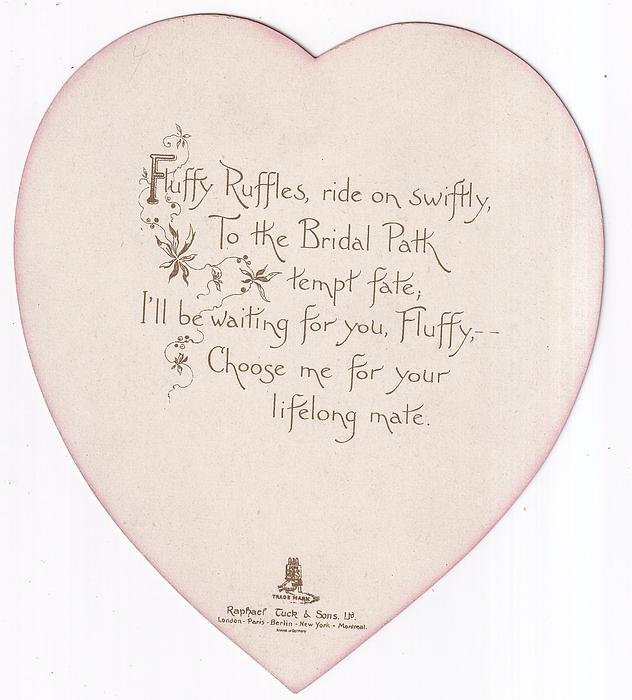 Fluffy Ruffles, ride on swiftly,
To the Bridal Path
tempt fate;
I'll be waiting for you, Fluffy,--
Choose me for your
lifelong mate.
TRADE MARK
Raphael Tuck & Sons. Ltd.
London - Paris - Berlin - New York - Montreal.